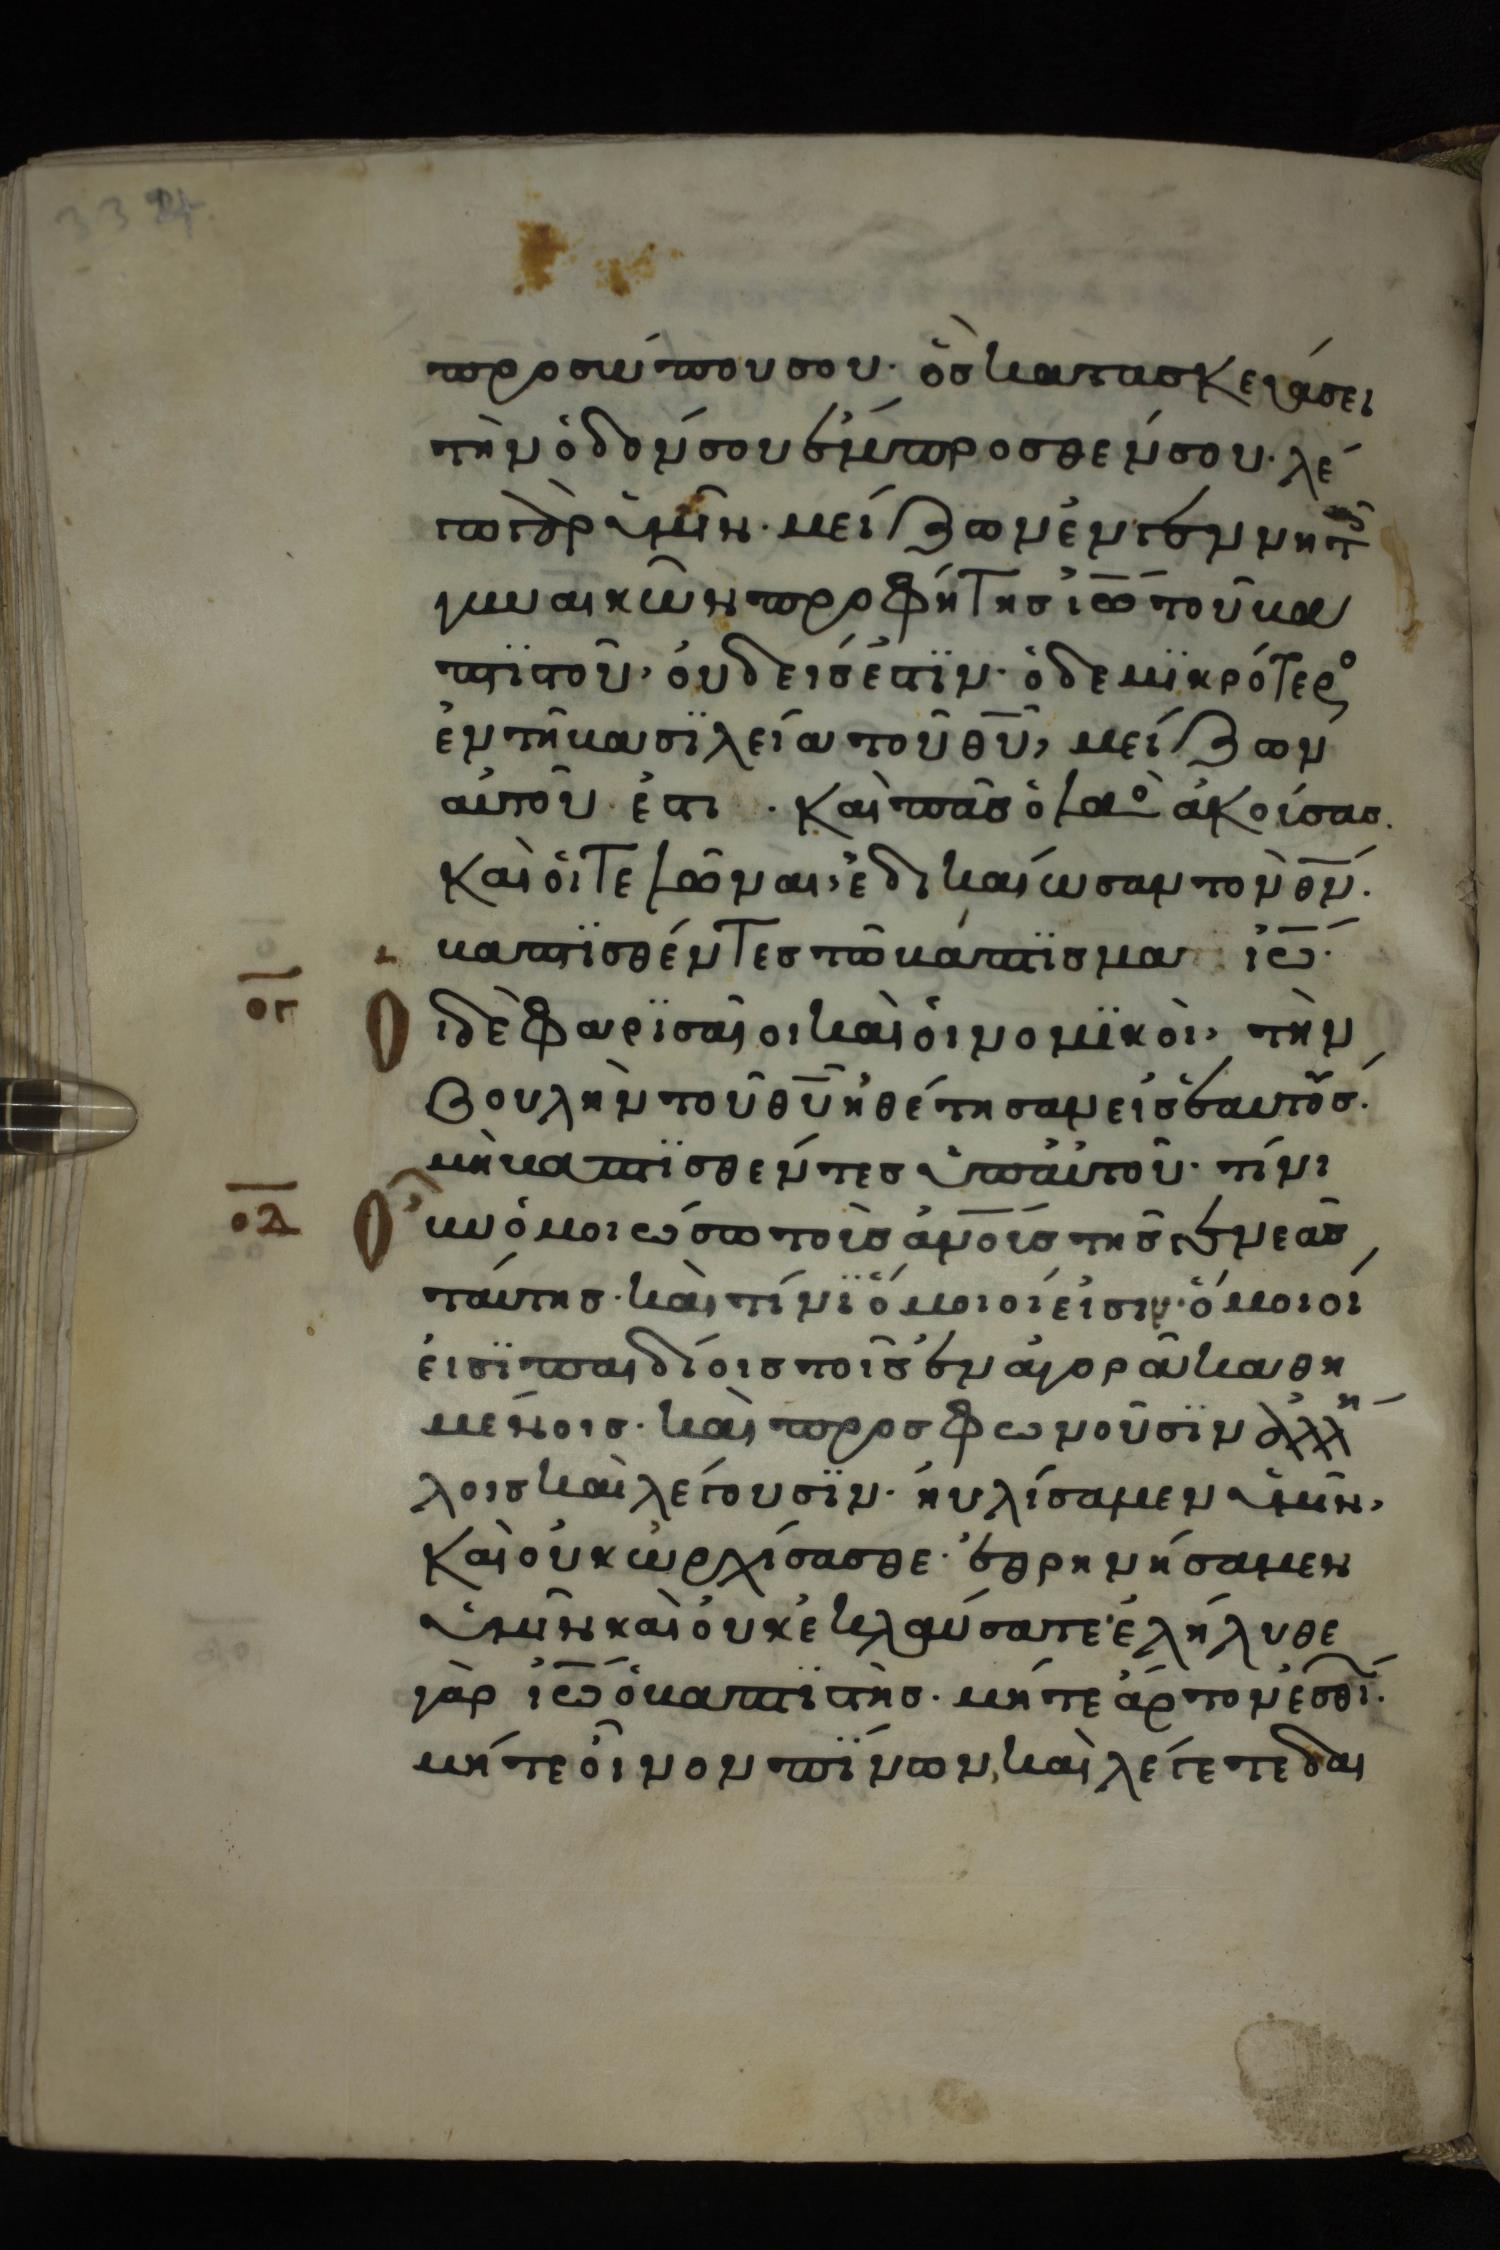 334
προσώπου σου· ὃς κατασκευάσει
τὴν ὁδόν σου ἔμπροσθέν σου· λέ
γω γὰρ ὑμῖν· μείζων ἐν γεννητ
γυναικῶν προφήτης ἰω τοῦ βα
πτϊστοῦ, οὐδείς ἐστϊν· ὁ δε μϊκρότερο
ἐν τῆ βασϊλεία τοῦ θυ, μείζων
αὐτοῦ ἐστι · καὶ πᾶς ὁ λαο ἀκούσας.
καὶ οἱ τελῶναι, ἐδικαίωσαν τὸν θν.
βαπτϊσθέντες τὸ βάπτϊσμα ἰω·
ογ
Οι δὲ φαρϊσαῖοι καὶ οἱ νομϊκοὶ, τὴν
βουλὴν τοῦ θυ ἠθέτησαν εἰς ἑαυτούς.
μὴ βαπτϊσθέντες ὑπ' αὐτοῦ· τίνι
οδ
Οὖν ὁμοιώσω τοὺς ἀνους τῆς γενεᾶς
ταύτης· καὶ τίνϊ ὅμοιοί εἰσιν· ὅμοιοί
εἰσϊ παιδίοις τοῖς ἐν ἀγορᾶ καθη
μένοις· καὶ προσφωνοῦσϊν ἀλλή
λοις καὶ λέγουσϊν· ηὐλίσαμεν ὑμῖν,
καὶ οὐκ ὠρχίσασθε· ἐθρηνήσαμεν
ὑμῖν καὶ οὐκ ἐκλαύσατε· ἐλήλυθε
γὰρ ἰω ὁ βαπτϊστὴς· μήτε ἄρτον ἐσθί·
μήτε οἶνον πϊνων, καὶ λέγετε δαι